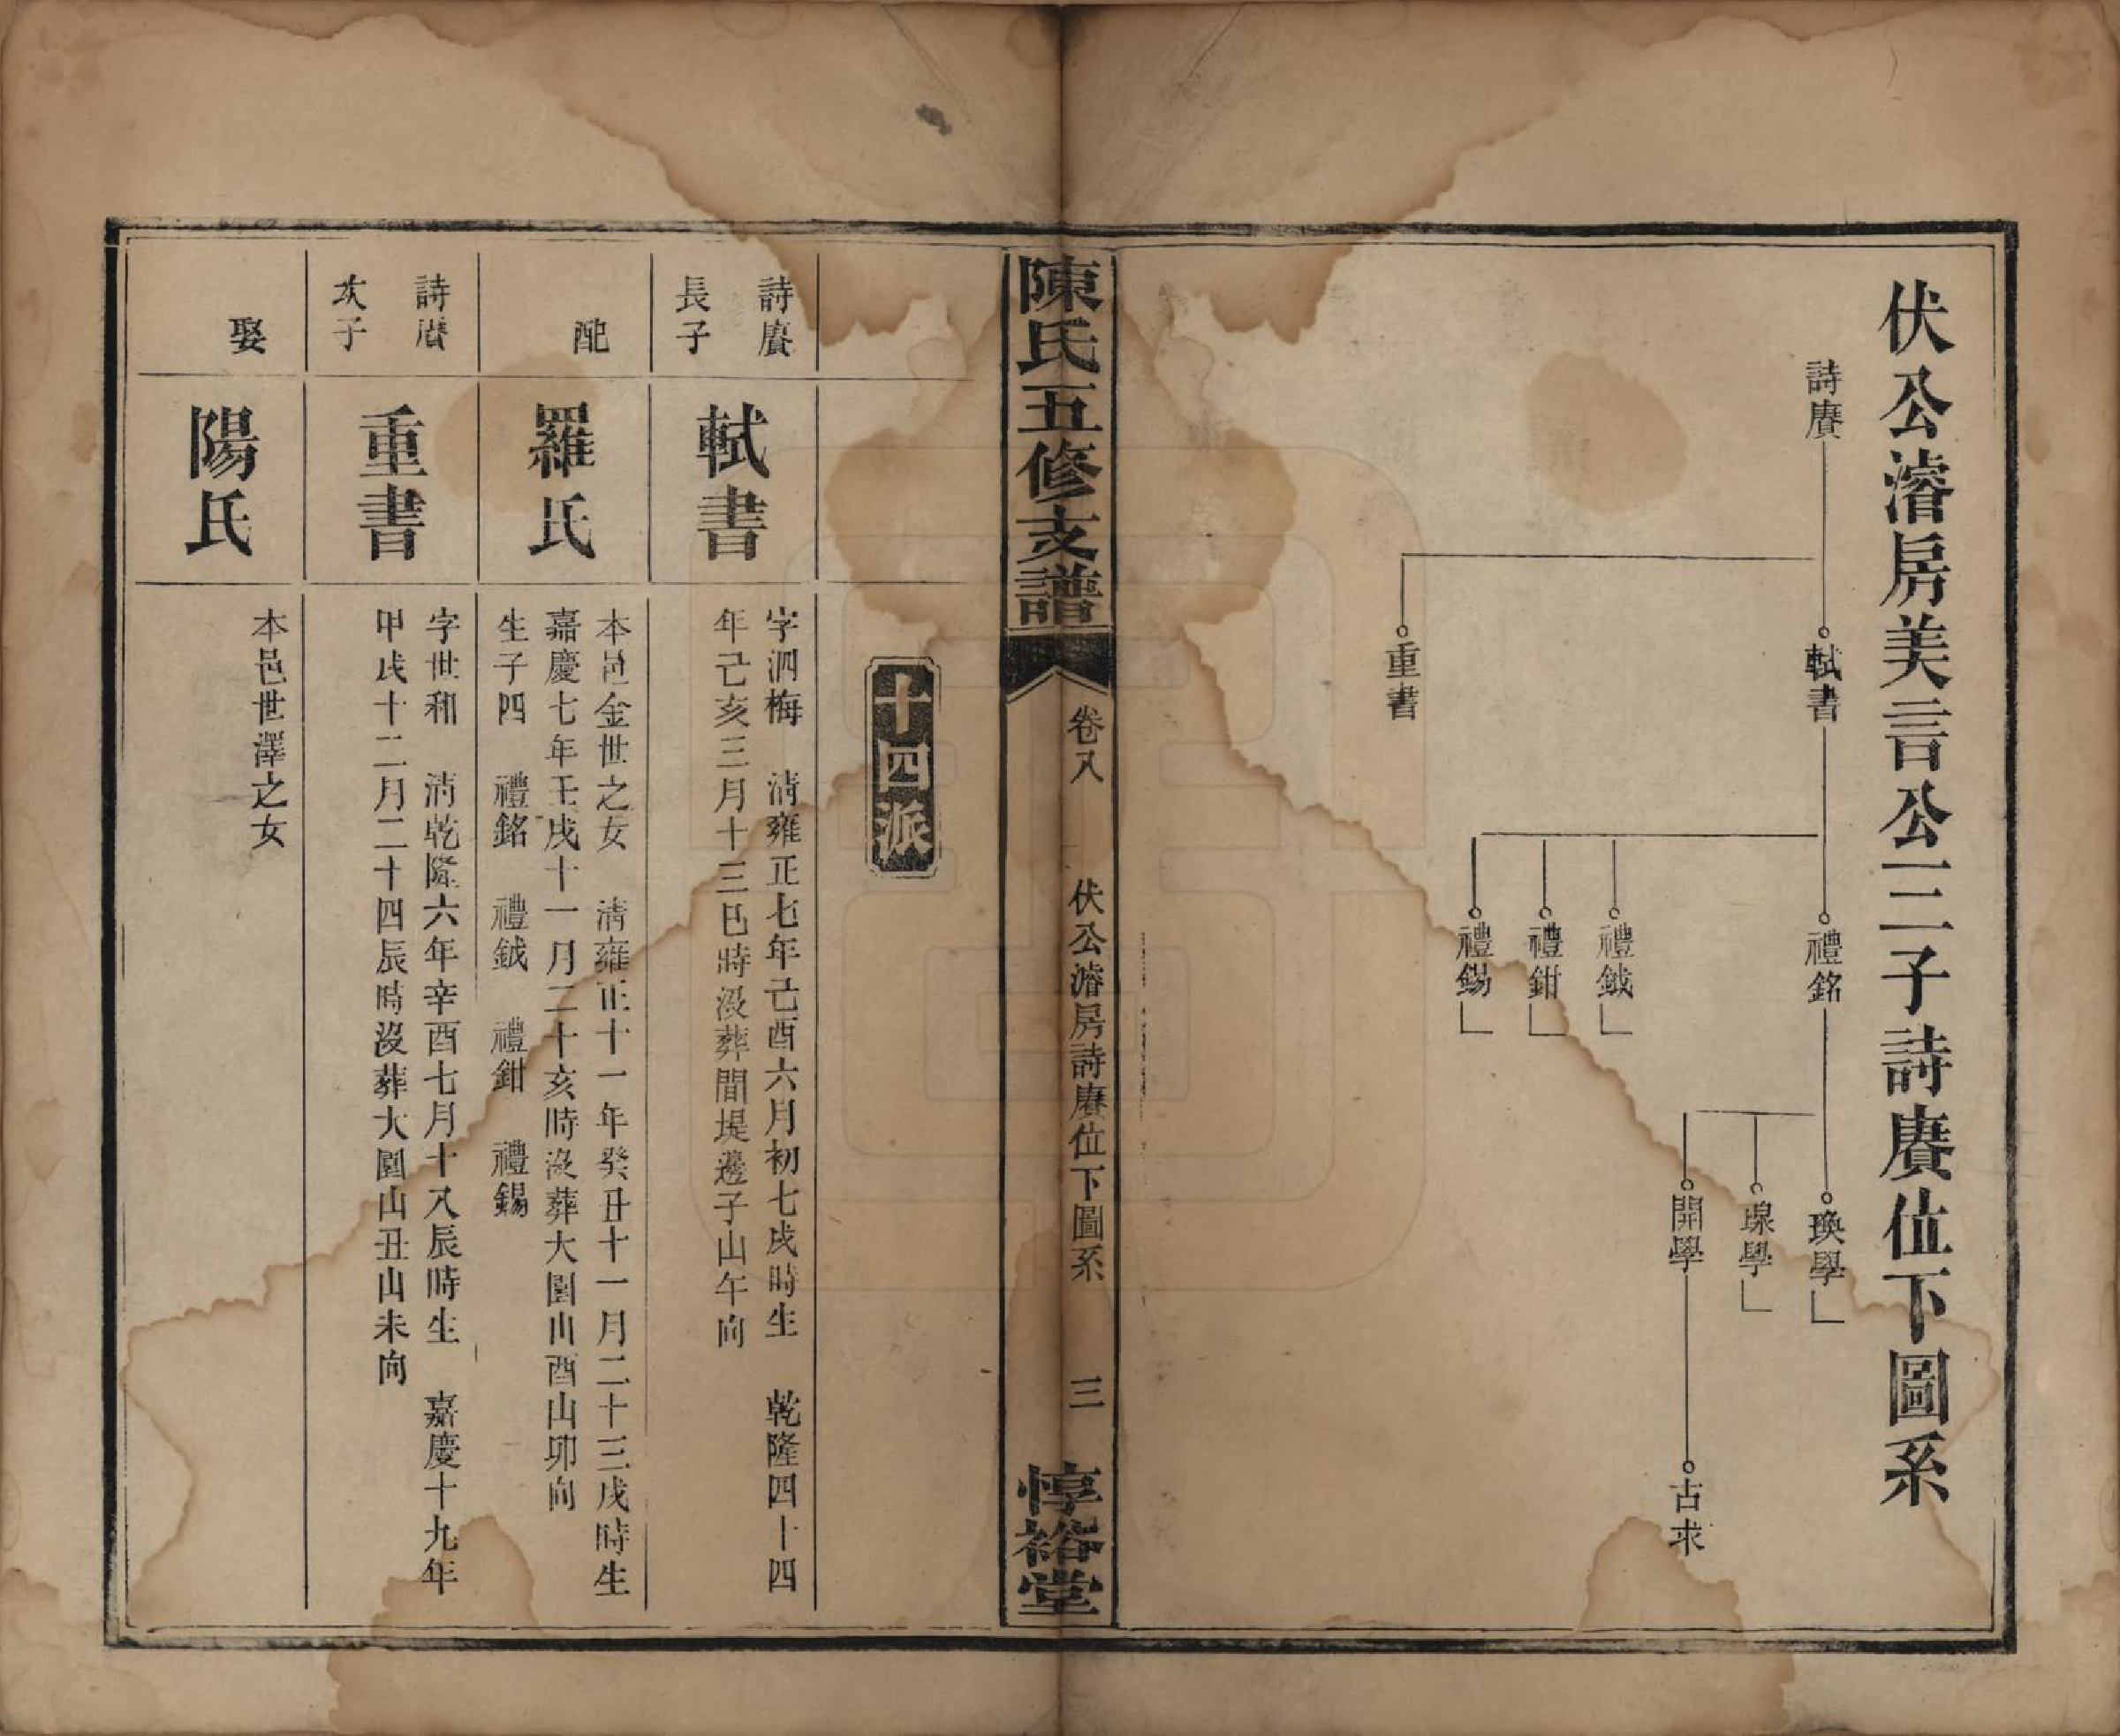 伏公濬房美言公三子詩賡位下圖系
詩賡
軾書
重書
禮銘
禮鉞
禮鉗
禮錫
煥學
學
開學
古求
陳氏五修支譜
卷八
伏公濬房詩賡位下圖系
三
惇裕堂
十四派
詩賡
長子
軾書
字泗梅 清雍正七年己酉六月初七戌時生 乾隆四十四
年己亥三月十三巳時沒葬間堤邊子山午向
配
羅氏
本邑金世之女 清雍正十一年癸丑十一月二十三戌時生
嘉慶七年壬戌十一月二十亥時沒葬大圍山酉山卯向
生子四 禮銘 禮鉞 禮鉗 禮錫
詩賡
次子
重書
字世和 清乾隆六年辛酉七月十八辰時生 嘉慶十九年
甲戌十二月二十四辰時沒葬大圍山丑山未向
娶
陽氏
本邑世澤之女